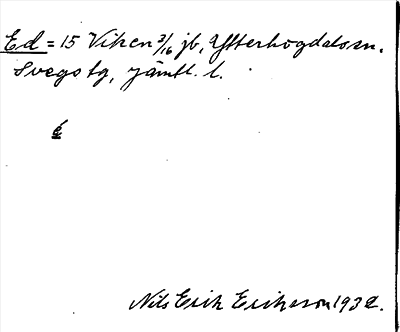 Ed = 15 Viken 3/16 jb, Ytterhogdals sn.
Svegs tg, Jämtl. l.
é
Nils Erik Erikson 1932.